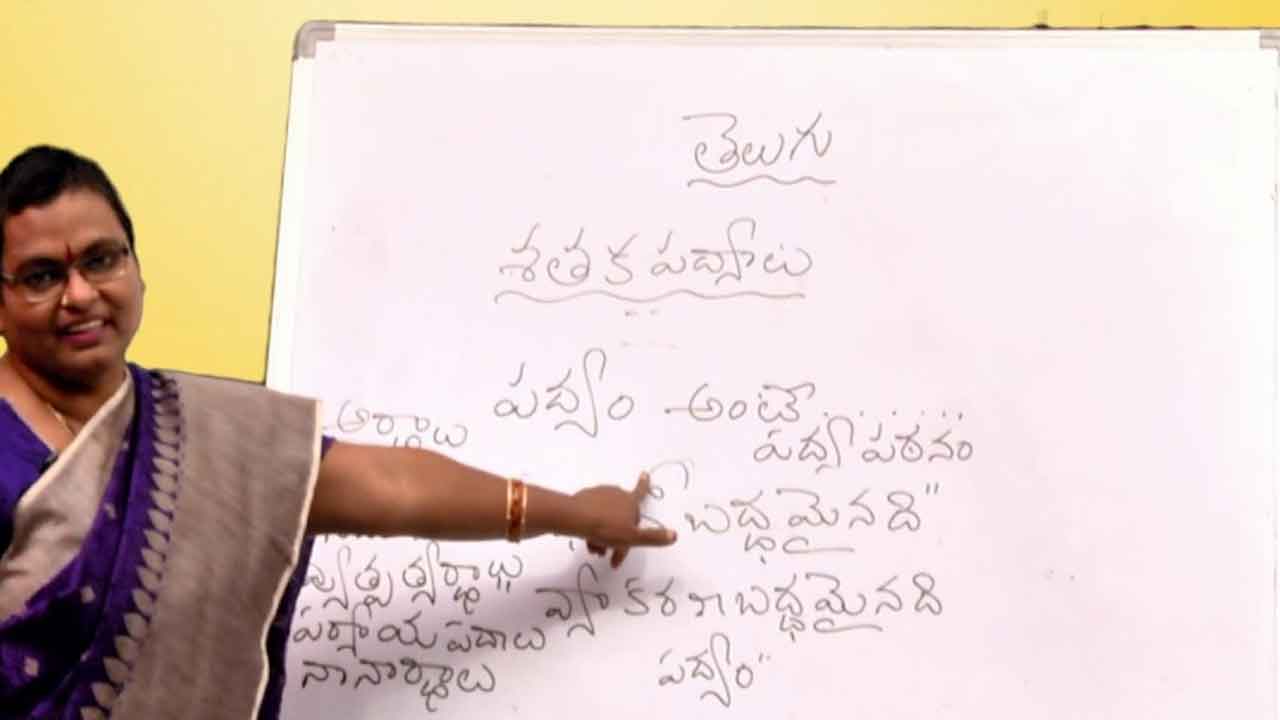 తెలుగు
శతక పద్యాలు
పద్యం అంటే......
అర్థాలు
పద్య పఠనం
బద్ధమైనది"
వ్యుత్పత్త్యర్థాలు
వ్యాకరణ బద్ధమైనది
పర్యాయ పదాలు
నానార్థాలు
పద్యం"